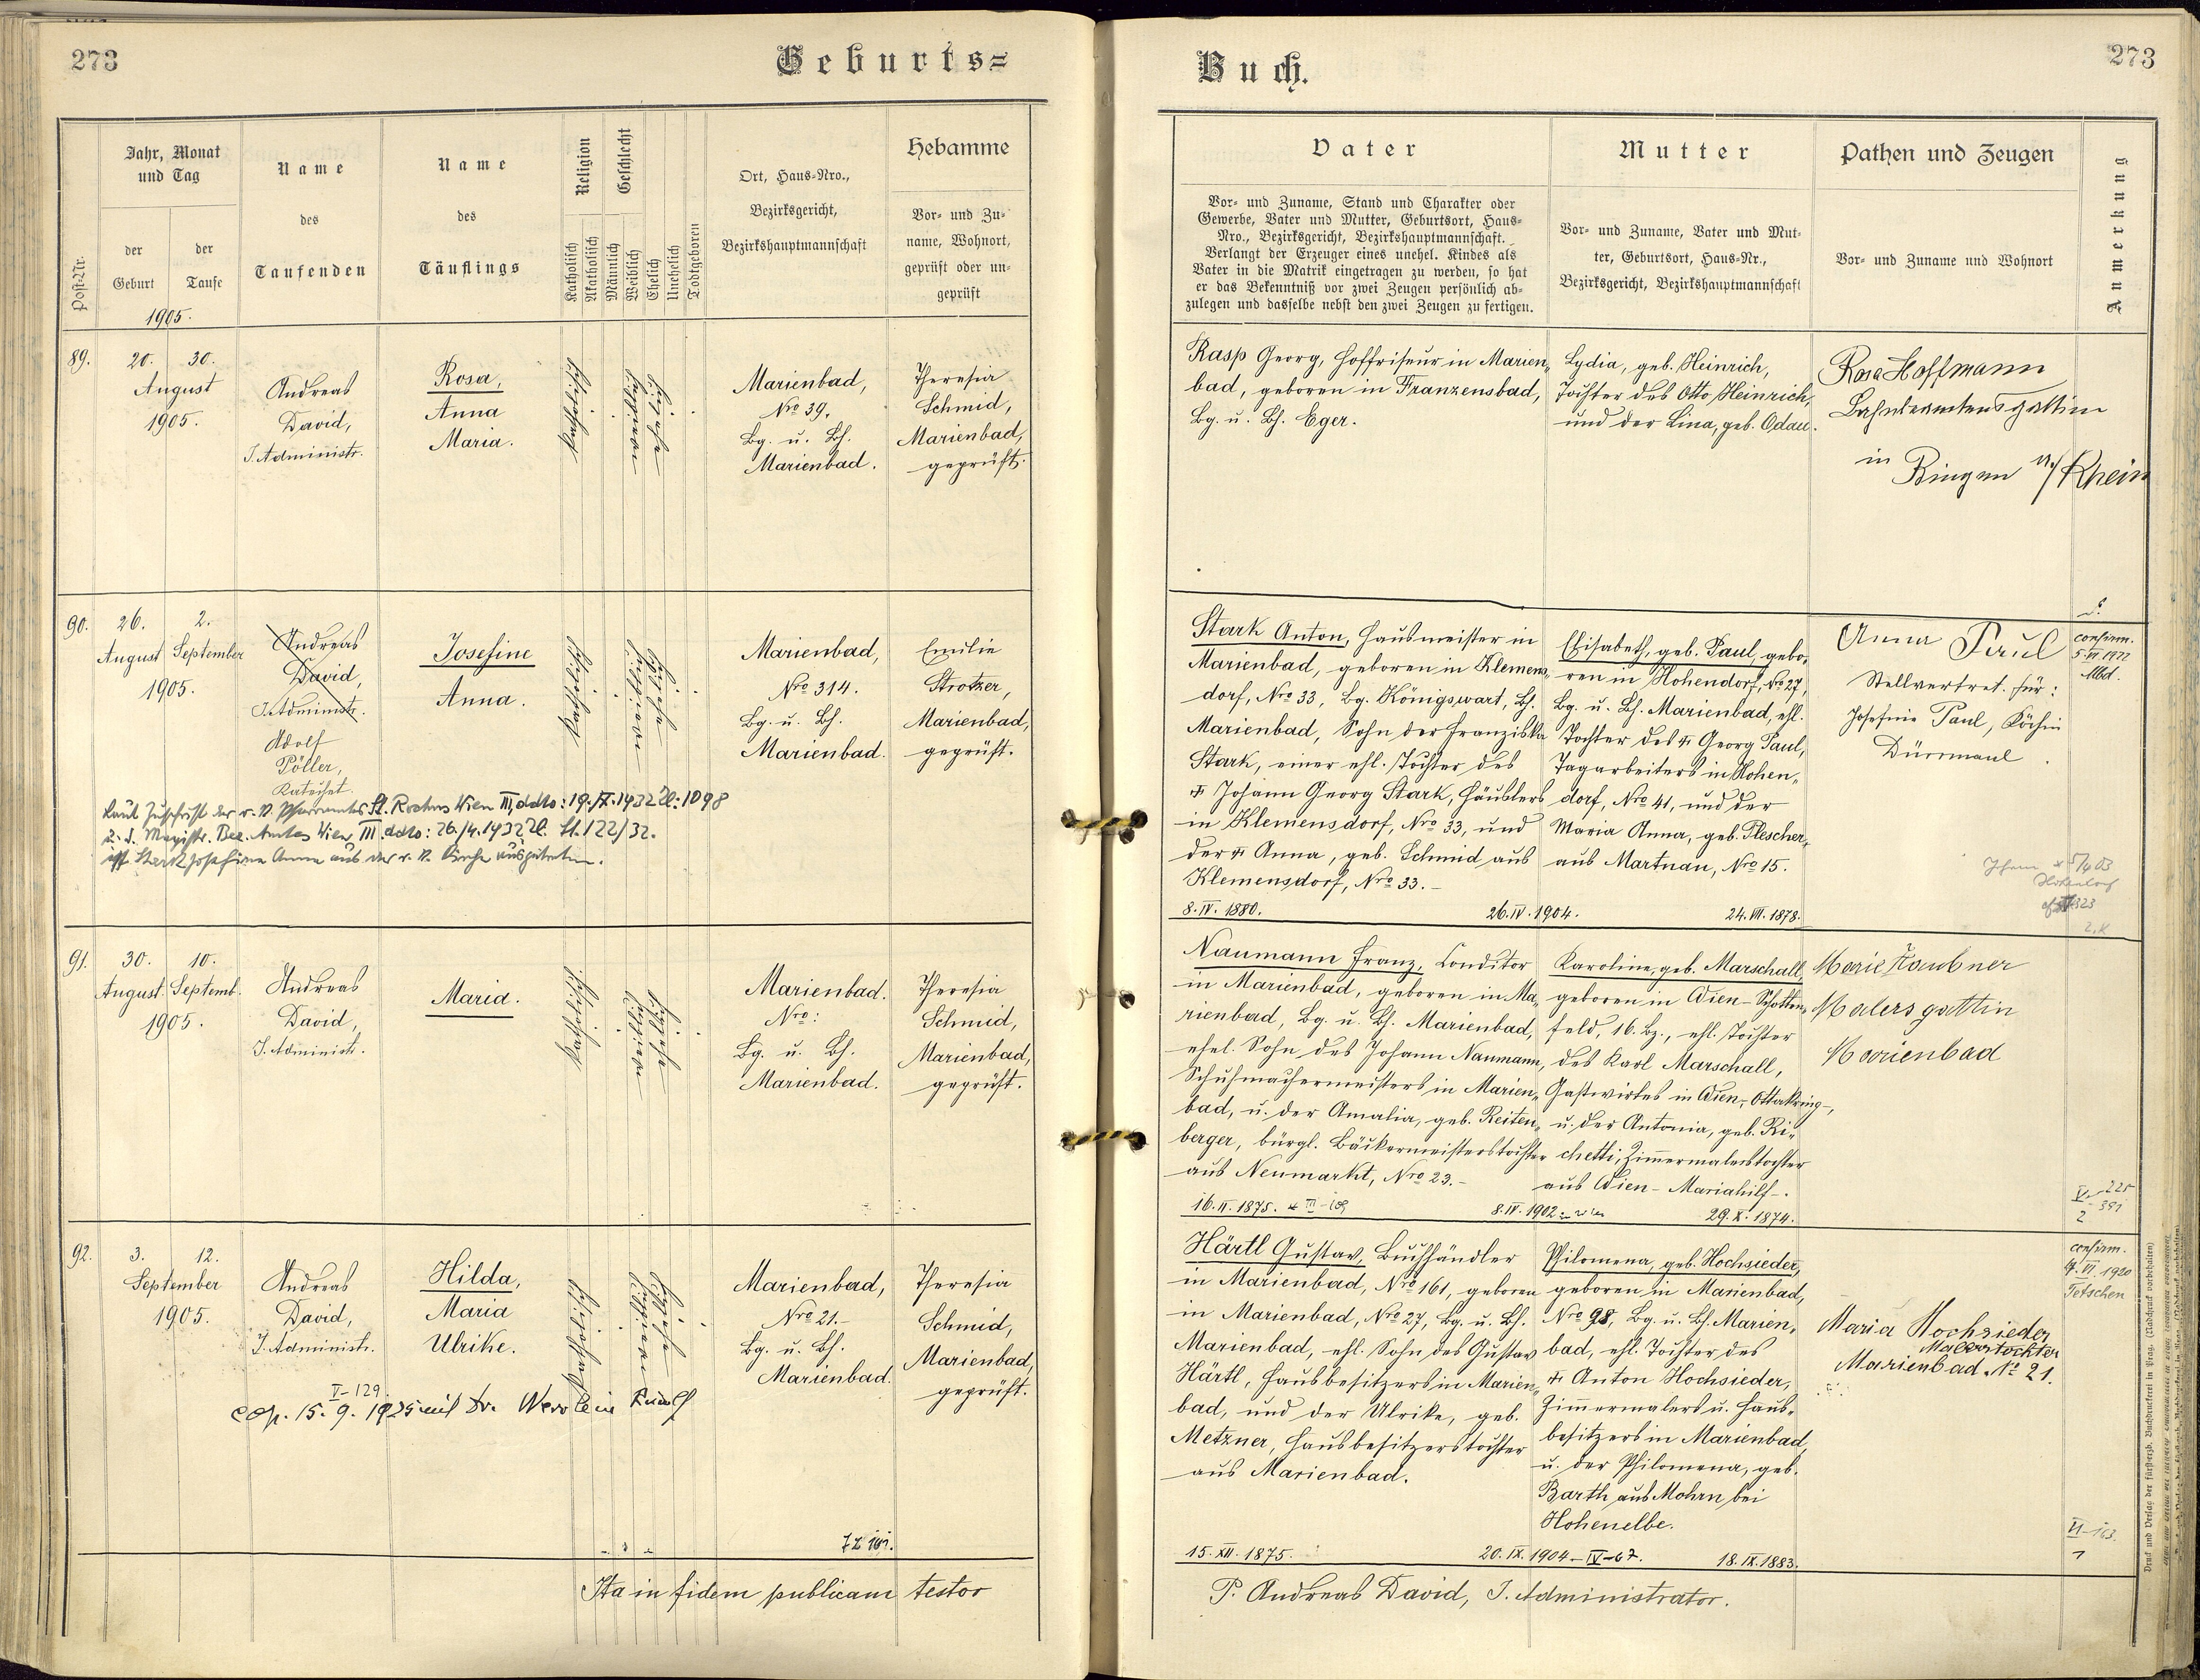 273
Geburts=
Jahr, Monat
und Tag
der
Geburt
der
Taufe
Post-Nr.
1905.
Name
des
Taufenden
Name
des
Täuflings
Religion
Katholisch
Akatholisch
Geschlecht
Männlich
Weiblich
Ehelich
Unehelich
Todtgeboren
Ort, Haus-Nro.,
Bezirksgericht,
Bezirkshauptmannschaft
Hebamme
Vor- und Zu-
name, Wohnort,
geprüft oder un-
geprüft
89.
20. 30.
August
1905.
Andreas
David,
I. Administr.
Rosa,
Anna
Maria.
katholisch
weiblich
ehelich
Marienbad,
Nro 39.
Bg. u. Bh.
Marienbad.
Theresia
Schmid,
Marienbad,
geprüft.
90.
26. 2.
August September
1905.
Andreas
David,
I. Administr.
Adolf
Pöller,
Katechet.
Josefine
Anna.
katholisch
ehelich
Marienbad,
Nro 314.
Bg. u. Bh.
Marienbad.
Emilie
Strotzer,
Marienbad,
geprüft.
Laut Zuschrift des r. k. Pfarramtes St. Rochus Wien III, ddto: 19. IV. 1932 Zl: 1098
u. d. Magistr. Bez. Amtes Wien III ddto: 26./4. 1932 Zl. St. 122/32.
ist Stark Josefine Anna aus der r. k. Kirche ausgetreten.
91.
30. 10.
August Septemb.
1905.
Andreas
David,
I. Administr.
Maria.
katholisch
ehelich
Marienbad.
Nro:
Bg. u. Bh.
Marienbad.
Theresia
Schmid,
Marienbad,
geprüft.
92.
3. 12.
September
1905.
Andreas
David,
I. Administr.
Hilda,
Maria
Ulrike.
katholisch
ehelich
Marienbad,
Nro 21.-
Bg. u. Bh.
Marienbad.
Theresia
Schmid,
Marienbad,
geprüft.
V-129
cop. 15. 9. 1925 mit Dr. Rudolf
Ita in fidem publicam testor
273
Buch.
Vater
Vor- und Zuname, Stand und Charakter oder
Gewerbe, Vater und Mutter, Geburtsort, Haus-
Nro., Bezirksgericht, Bezirkshauptmannschaft.
Verlangt der Erzeuger eines unehel. Kindes als
Vater in die Matrik eingetragen zu werden, so hat
er das Bekenntniß vor zwei Zeugen persönlich ab-
zulegen und dasselbe nebst den zwei Zeugen zu fertigen.
Mutter
Vor- und Zuname, Vater und Mut-
ter, Geburtsort, Haus-Nr.,
Bezirksgericht, Bezirkshauptmannschaft
Pathen und Zeugen
Vor- und Zuname und Wohnort
Anmerkung
Rasp Georg, Hoffriseur in Marien„
bad, geboren in Franzensbad,
Bg. u. Bh. Eger.
Lydia, geb. Heinrich,
Tochter des Otto Heinrich,
und der Lina, geb. Odau.
Rosa Hoffmann
Bahnbeamtensgattin
in
Bingen a/Rhein
Stark Anton, Hausmeister in
Marienbad, geboren in Klemens„
dorf, Nro 33, Bg. Königswart, Bh.
Marienbad, Sohn der Franziska
Stark, einer ehl. Tochter des
☩ Johann Georg Stark, Häuslers
in Klemensdorf, Nro 33, und
der ☩ Anna, geb. Schmid aus
Klemensdorf, Nro 33.-
8. IV. 1880.
26. IV. 1904.
Elisabeth, geb. Paul, gebo„
ren in Hohendorf, No 27,
Bg. u. Bh. Marienbad, ehl.
Tochter des ☩ Georg Paul,
Tagarbeiters in Hohen„
dorf, Nro 41, und der
Maria Anna, geb. Plescher,
aus Martnau, Nro 15.
24. VII. 1878.
Anna Paul
Stellvertret. für:
Josefine Paul, Köchin
Dürrmaul.
confirm.
5. VI. 1922
Mbd.
Naumann Franz, Conditor
in Marienbad, geboren in Ma„
rienbad, Bg. u. Bh. Marienbad,
ehel. Sohn des Johann Naumann,
Schuhmachermeisters in Marien„
bad, u. der Amalia, geb. Reiten„
berger, bürgl. Bäckermeisterstochter
aus Neumarkt, Nro 23.-
16. II. 1875.
8. IV. 1902 in Wien
Karoline, geb. Marschall,
geboren in Wien-Schotten„
feld, 16. Bz., ehl. Tochter
des Karl Marschall,
Gastwirtes in Wien-Ottakring-,
u. der Antonia, geb. Ri„
chetti, Zimmermalerstochter
aus Wien-Mariahilf-.
29. X. 1874.
Marie Taubner
Malersgattin
Marienbad
Härtl Gustav, Buchhändler
in Marienbad, Nro 161, geboren
in Marienbad, Nro 27, Bg. u. Bh.
Marienbad, ehl. Sohn des Gustav
Härtl, Hausbesitzers in Marien„
bad, und der Ulrike, geb.
Metzner, Hausbesitzerstochter
aus Marienbad.
15. XII. 1875.
20. IX. 1904-IV-67.
Philomena, geb. Hochsieder,
geboren in Marienbad,
Nro 98, Bg. u. Bh. Marien„
bad, ehl. Tochter des
☩ Anton Hochsieder,
Zimmermalers u. Haus„
besitzers in Marienbad,
u. der Philomena, geb.
Barth aus Mohrn bei
Hohenelbe.
18. IX. 1883.
Maria Hochsieder
Malerstochter
Marienbad No 21.
confirm.
4. VI. 1920
Tetschen
VI-163
P. Andreas David, I. Administrator.
Druck und Verlag der fürsterzb. Buchdruckerei in Prag. (Nachdruck vorbehalten)